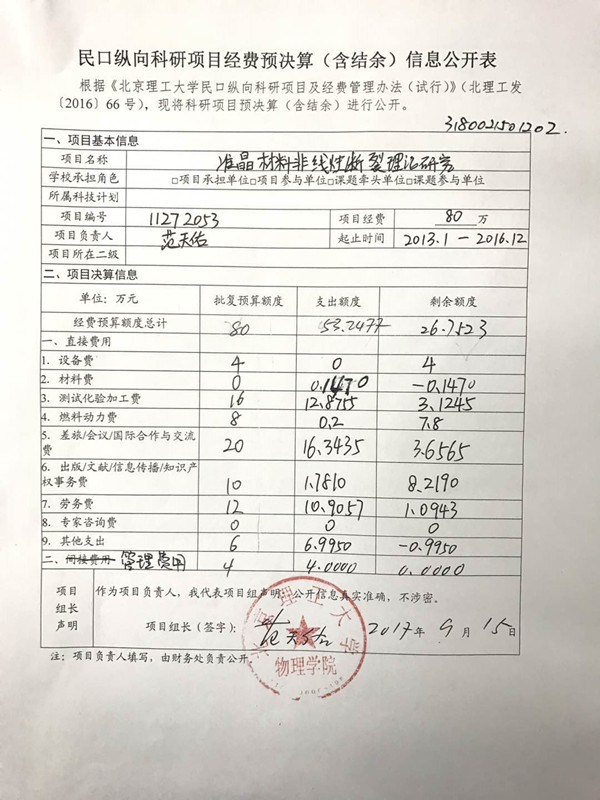 民口纵向科研项目经费预决算（含结余）信息公开表
根据《北京理工大学民口纵向科研项目及经费管理办法（试行）》（北理工发
〔2016〕66号），现将科研项目预决算（含结余）进行公开。
3180021501202.
一、项目基本信息
项目名称 准晶材料非线性断裂理论研究
学校承担角色 □项目承担单位□项目参与单位□课题牵头单位□课题参与单位
所属科技计划
项目编号 11272053 项目经费 80 万
项目负责人 范天佑 起止时间 2013.1－2016.12
项目所在二级
二、项目决算信息
单位：万元 批复预算额度 支出额度 剩余额度
经费预算额度总计 80 53.2477 26.7523
一、直接费用
1. 设备费 4 0 4
2. 材料费 0 0.1470 -0.1470
3. 测试化验加工费 16 12.8755 3.1245
4. 燃料动力费 8 0.2 7.8
5. 差旅/会议/国际合作与交流
费 20 16.3435 3.6565
6. 出版/文献/信息传播/知识产
权事务费 10 1.7810 8.2190
7. 劳务费 12 10.9057 1.0943
8. 专家咨询费 0 0 0
9. 其他支出 6 6.9950 -0.9950
二、间接费用 管理费用 4 4.0000 0.0000
项目
组长
声明
作为项目负责人，我代表项目组声明，公开信息真实准确，不涉密。
项目组长（签字）： 范天佑 2017年9月15日
北京理工大学
物理学院
注：项目负责人填写，由财务处负责公开。